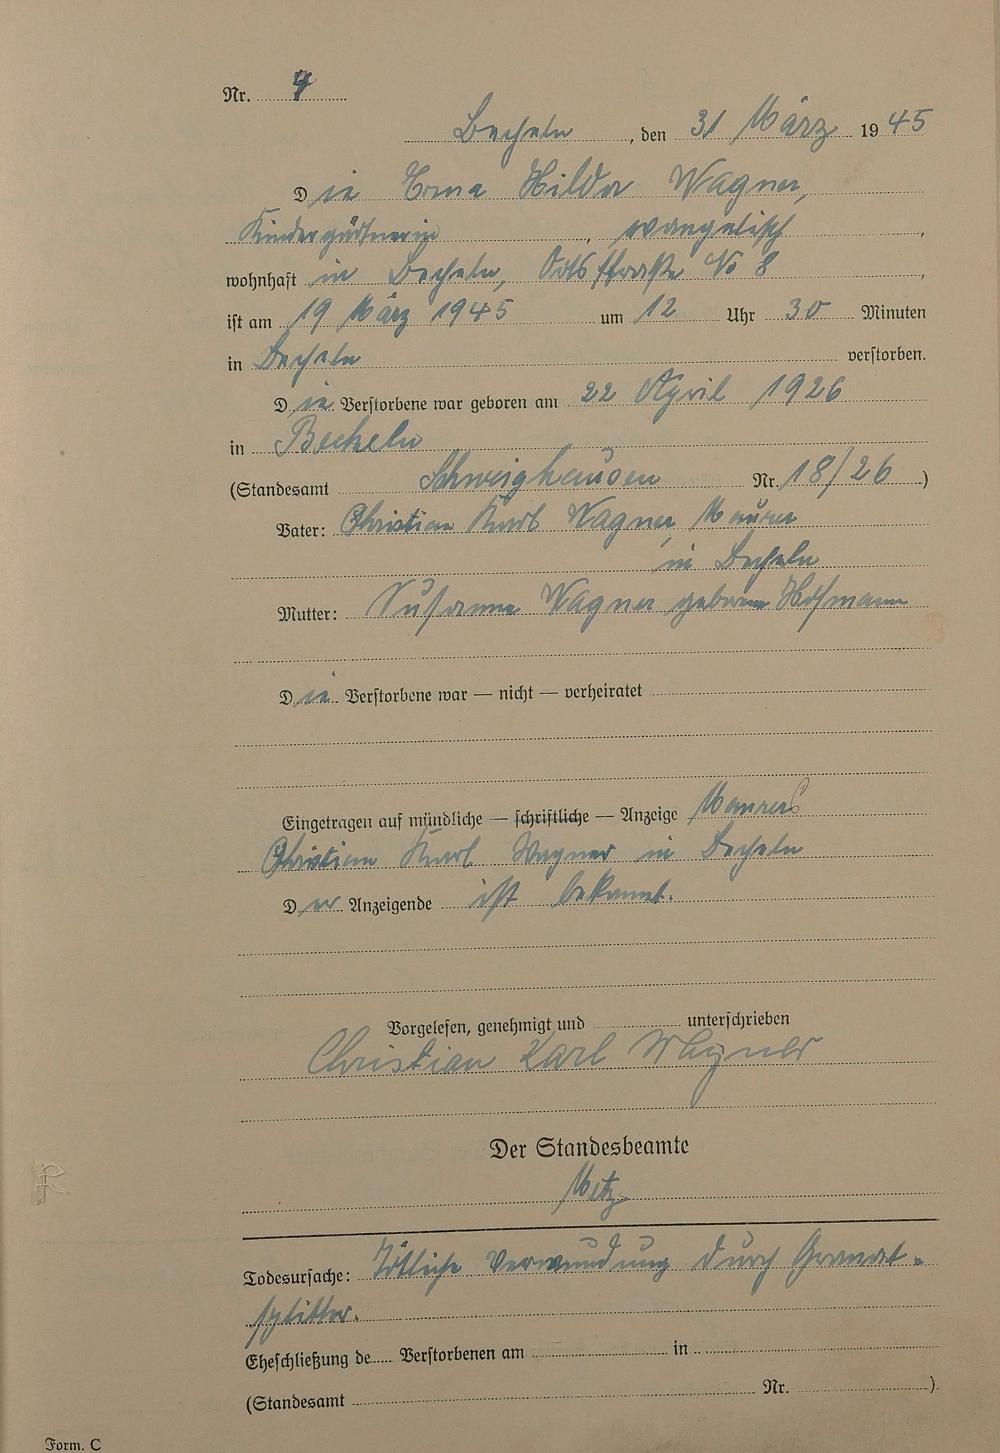 Nr. 4
Becheln, den 31 März 1945
Die Erna Hilda Wagner,
Kindergärtnerin, evangelisch,
wohnhaft in Becheln, Ortsstraße No 8,
ist am 19 März 1945 um 12 Uhr 30 Minuten
in Becheln verstorben.
Die Verstorbene war geboren am 22 April 1926
in Becheln
(Standesamt Schweighausen Nr. 18/26)
Vater: Christian Karl Wagner, Maurer
in Becheln
Mutter: Susanne Wagner geborene Hofmann
Die Verstorbene war — nicht — verheiratet
Eingetragen auf mündliche — schriftliche — Anzeige Maurers
Christian Karl Wagner in Becheln
Der Anzeigende ist bekannt.
Vorgelesen, genehmigt und unterschrieben
Christian Karl Wagner
Der Standesbeamte
Metz
Todesursache: Tötliche Verwundung durch Granat-
splitter.
Eheschließung de Verstorbenen am in
(Standesamt Nr. )
Form. C